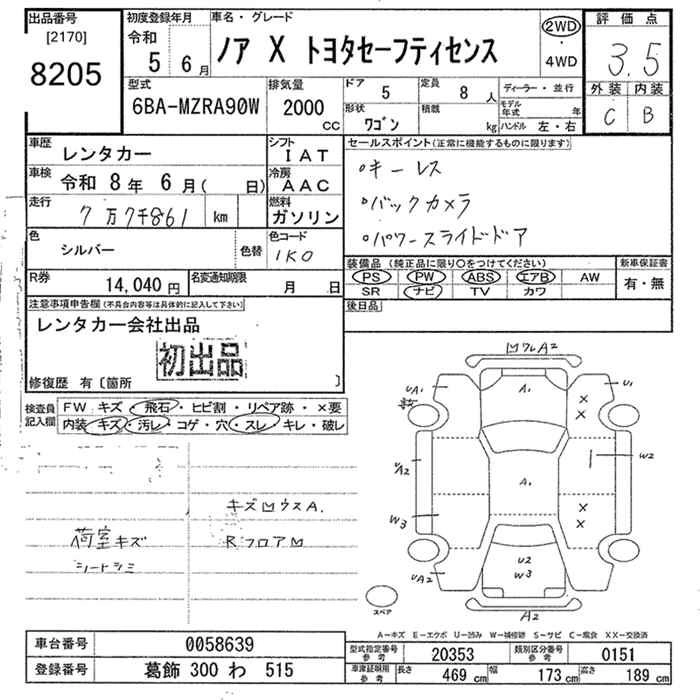 出品番号
[2170]
8205
初度登録年月
令和
5 6月
車名・グレード
ノア X トヨタセーフティセンス
2WD
・
4WD
評価点
3.5
外装 内装
C B
型式
6BA-MZRA90W
排気量
2000
CC
ドア 5
定員 8 人
形状 ワゴン
積載 kg
ディーラー・並行
モデル年式 年
ハンドル 左・右
車歴 レンタカー
シフト IAT
車検 令和 8年 6月( 日)
冷房 AAC
走行 7万7千861 km
燃料 ガソリン
色 シルバー
色替
色コード 1K0
R券 14,040円
名変通知期限 月 日
セールスポイント(正常に機能するものに限ります)
。キーレス
。バックカメラ
。パワースライドドア
装備品(純正品に限り○をつけてください)
新車保証書
PS PW ABS エアB AW
SR ナビ TV カワ
有・無
後日品
注意事項申告欄(不具合内容等は具体的に記入して下さい)
レンタカー会社出品
初出品
修復歴 有〔箇所 〕
検査員記入欄
FW キズ・飛石・ヒビ割・リペア跡・×要
内装 キズ・汚レ・コゲ・穴・スレ・キレ・破レ
荷室キズ
シートシミ
Rフロア
A2
A1
UA1
U1
×
×
A1
UA2
W2
W3
×
×
UA2
U2
W3
スペア
A2
A-キズ E-エクボ U-凹み W-補修跡 S-サビ C-腐食 XX-交換済
車台番号 0058639
登録番号 葛飾 300 わ 515
型式指定番号 参考 20353
類別区分番号 参考 0151
車庫証明用 参考 長さ 469 cm 幅 173 cm 高さ 189 cm